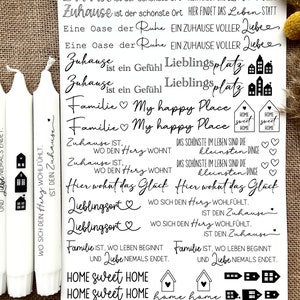 Zuhause ist der schönste Ort HIER FINDET DAS Leben STATT
Eine Oase der Ruhe EIN ZUHAUSE VOLLER Liebe
Eine Oase der Ruhe EIN ZUHAUSE VOLLER Liebe
Zuhause ist ein Gefühl Lieblingsplatz
Zuhause ist ein Gefühl Lieblingsplatz
Familie My happy Place
HOME sweet HOME
HOME sweet HOME
Familie My happy Place
Zuhause IST, WO DEIN Herz WOHNT
DAS SCHÖNSTE IM LEBEN SIND DIE kleinsten DINGE
Zuhause IST, WO DEIN Herz WOHNT
DAS SCHÖNSTE IM LEBEN SIND DIE kleinsten DINGE
Hier wohnt das Glück Hier wohnt das Glück
Lieblingsort WO SICH DEIN Herz WOHLFÜHLT,
IST DEIN Zuhause
Lieblingsort WO SICH DEIN Herz WOHLFÜHLT,
IST DEIN Zuhause
Familie IST, WO LEBEN BEGINNT
UND Liebe NIEMALS ENDET.
Familie IST, WO LEBEN BEGINNT
UND Liebe NIEMALS ENDET.
HOME sweet HOME
HOME sweet HOME
home home
UND Liebe NIEMALS ENDET.
WO SICH DEIN Herz WOHLFÜHLT,
IST DEIN Zuhause